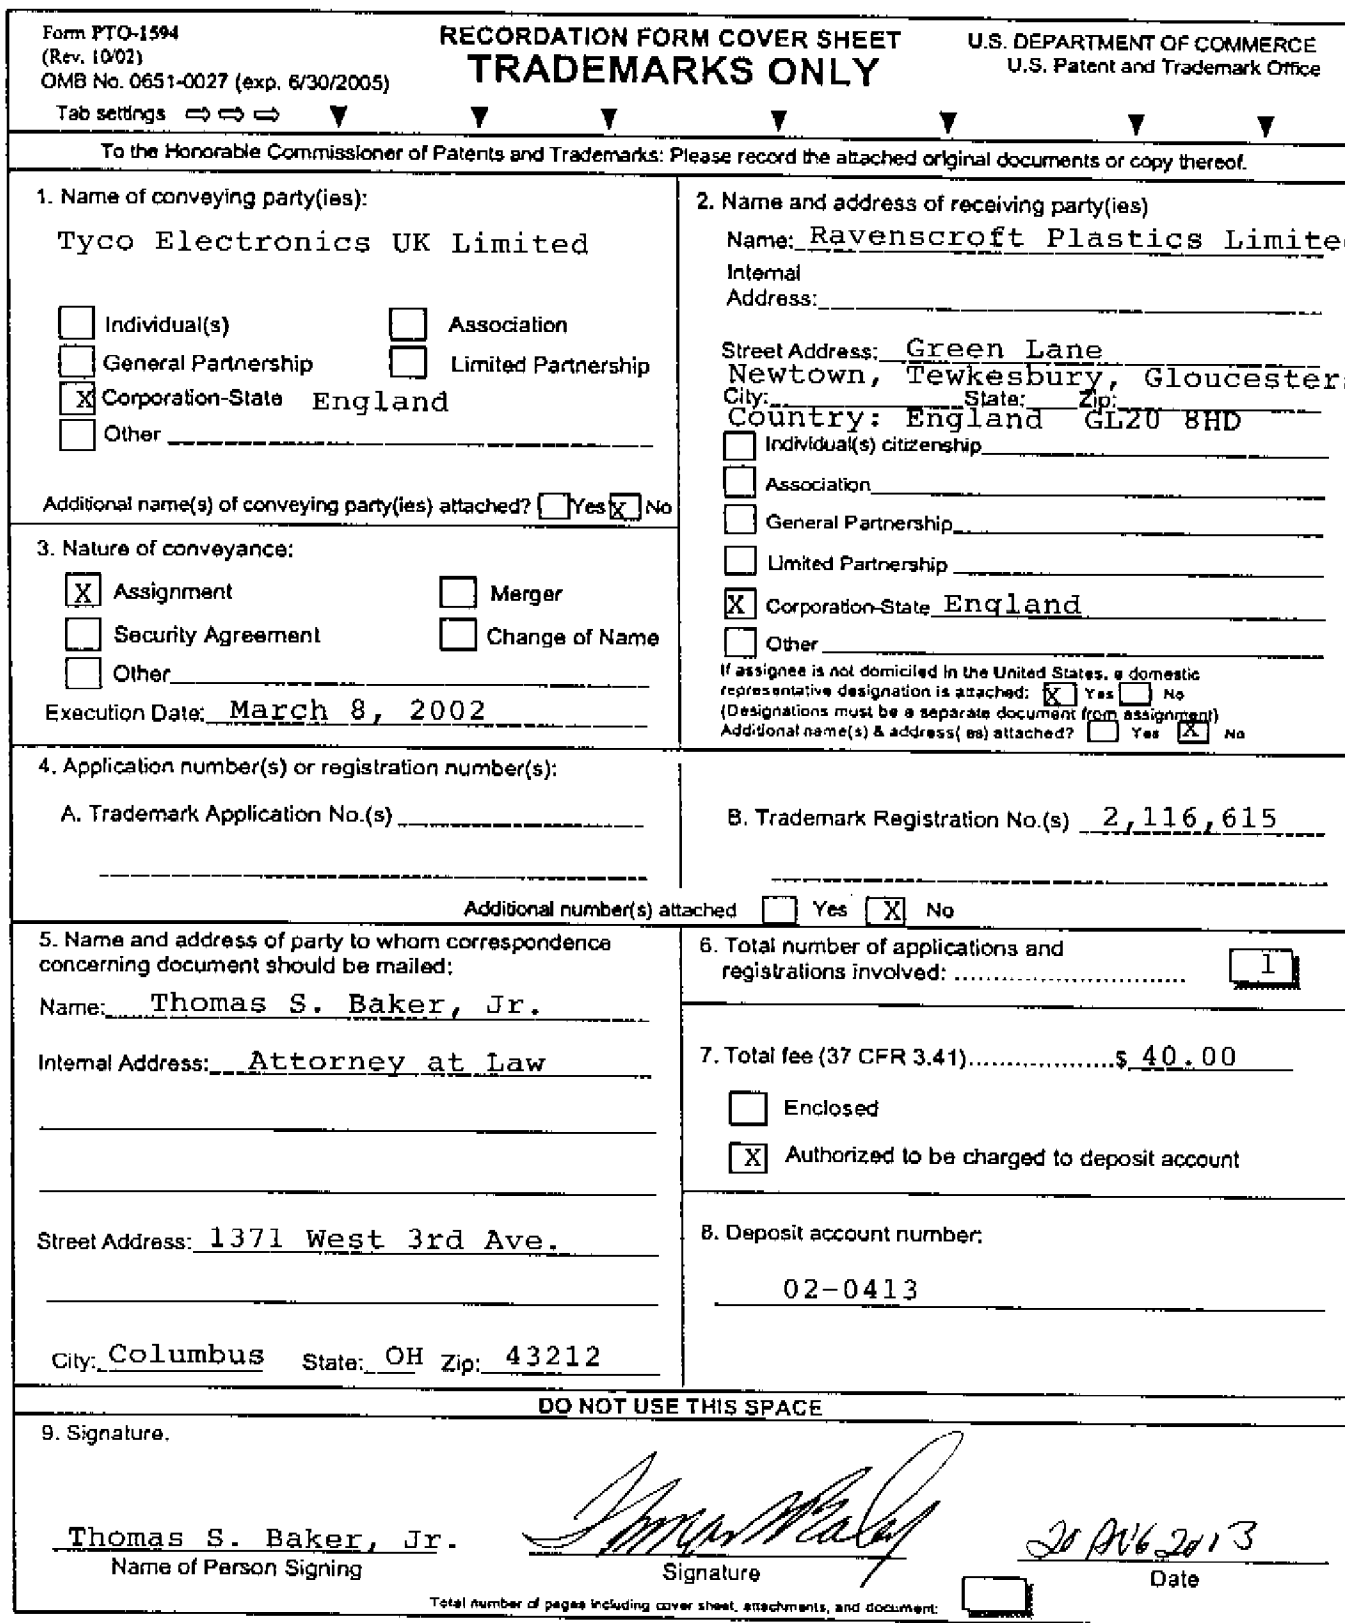 Form PTO-1594
(Rev. 10/02)
OMB No. 0651-0027 (exp. 6/30/2005)
RECORDATION FORM COVER SHEET
TRADEMARKS ONLY
U.S. DEPARTMENT OF COMMERCE
U.S. Patent and Trademark Office
Tab settings ⇨ ⇨ ⇨ ▼ ▼ ▼ ▼ ▼ ▼ ▼
To the Honorable Commissioner of Patents and Trademarks: Please record the attached original documents or copy thereof.
1. Name of conveying party(ies):
Tyco Electronics UK Limited
Individual(s) Association
General Partnership Limited Partnership
X Corporation-State England
Other
Additional name(s) of conveying party(ies) attached? Yes X No
2. Name and address of receiving party(ies)
Name: Ravenscroft Plastics Limite
Internal
Address:
Street Address: Green Lane
Newtown, Tewkesbury, Gloucesters
City: State: Zip:
Country: England GL20 8HD
Individual(s) citizenship
Association
General Partnership
Limited Partnership
X Corporation-State England
Other
If assignee is not domiciled in the United States, a domestic
representative designation is attached: X Yes No
(Designations must be a separate document from assignment)
Additional name(s) & address( es) attached? Yes X No
3. Nature of conveyance:
X Assignment Merger
Security Agreement Change of Name
Other
Execution Date: March 8, 2002
4. Application number(s) or registration number(s):
A. Trademark Application No.(s)
B. Trademark Registration No.(s) 2,116,615
Additional number(s) attached Yes X No
5. Name and address of party to whom correspondence
concerning document should be mailed:
Name: Thomas S. Baker, Jr.
Internal Address: Attorney at Law
Street Address: 1371 West 3rd Ave.
City: Columbus State: OH Zip: 43212
6. Total number of applications and
registrations involved: ............................ 1
7. Total fee (37 CFR 3.41)....................$ 40.00
Enclosed
X Authorized to be charged to deposit account
8. Deposit account number:
02-0413
DO NOT USE THIS SPACE
9. Signature.
Thomas S. Baker, Jr.
Name of Person Signing
Signature
20 AUG 2013
Date
Total number of pages including cover sheet, attachments, and document: